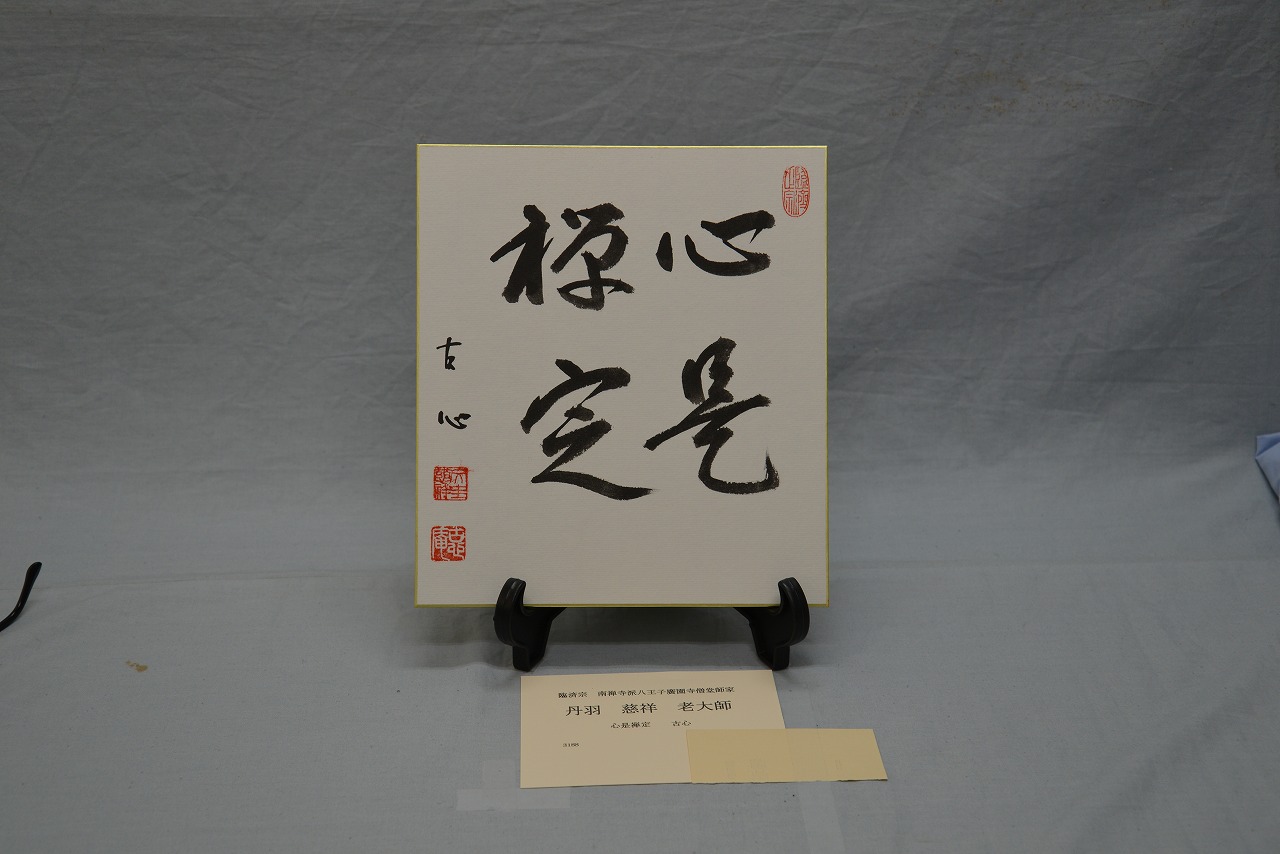 心是
禅定
古心
臨済宗 南禅寺派八王子廣園寺僧堂師家
丹羽 慈祥 老大師
心是禅定 古心
3188